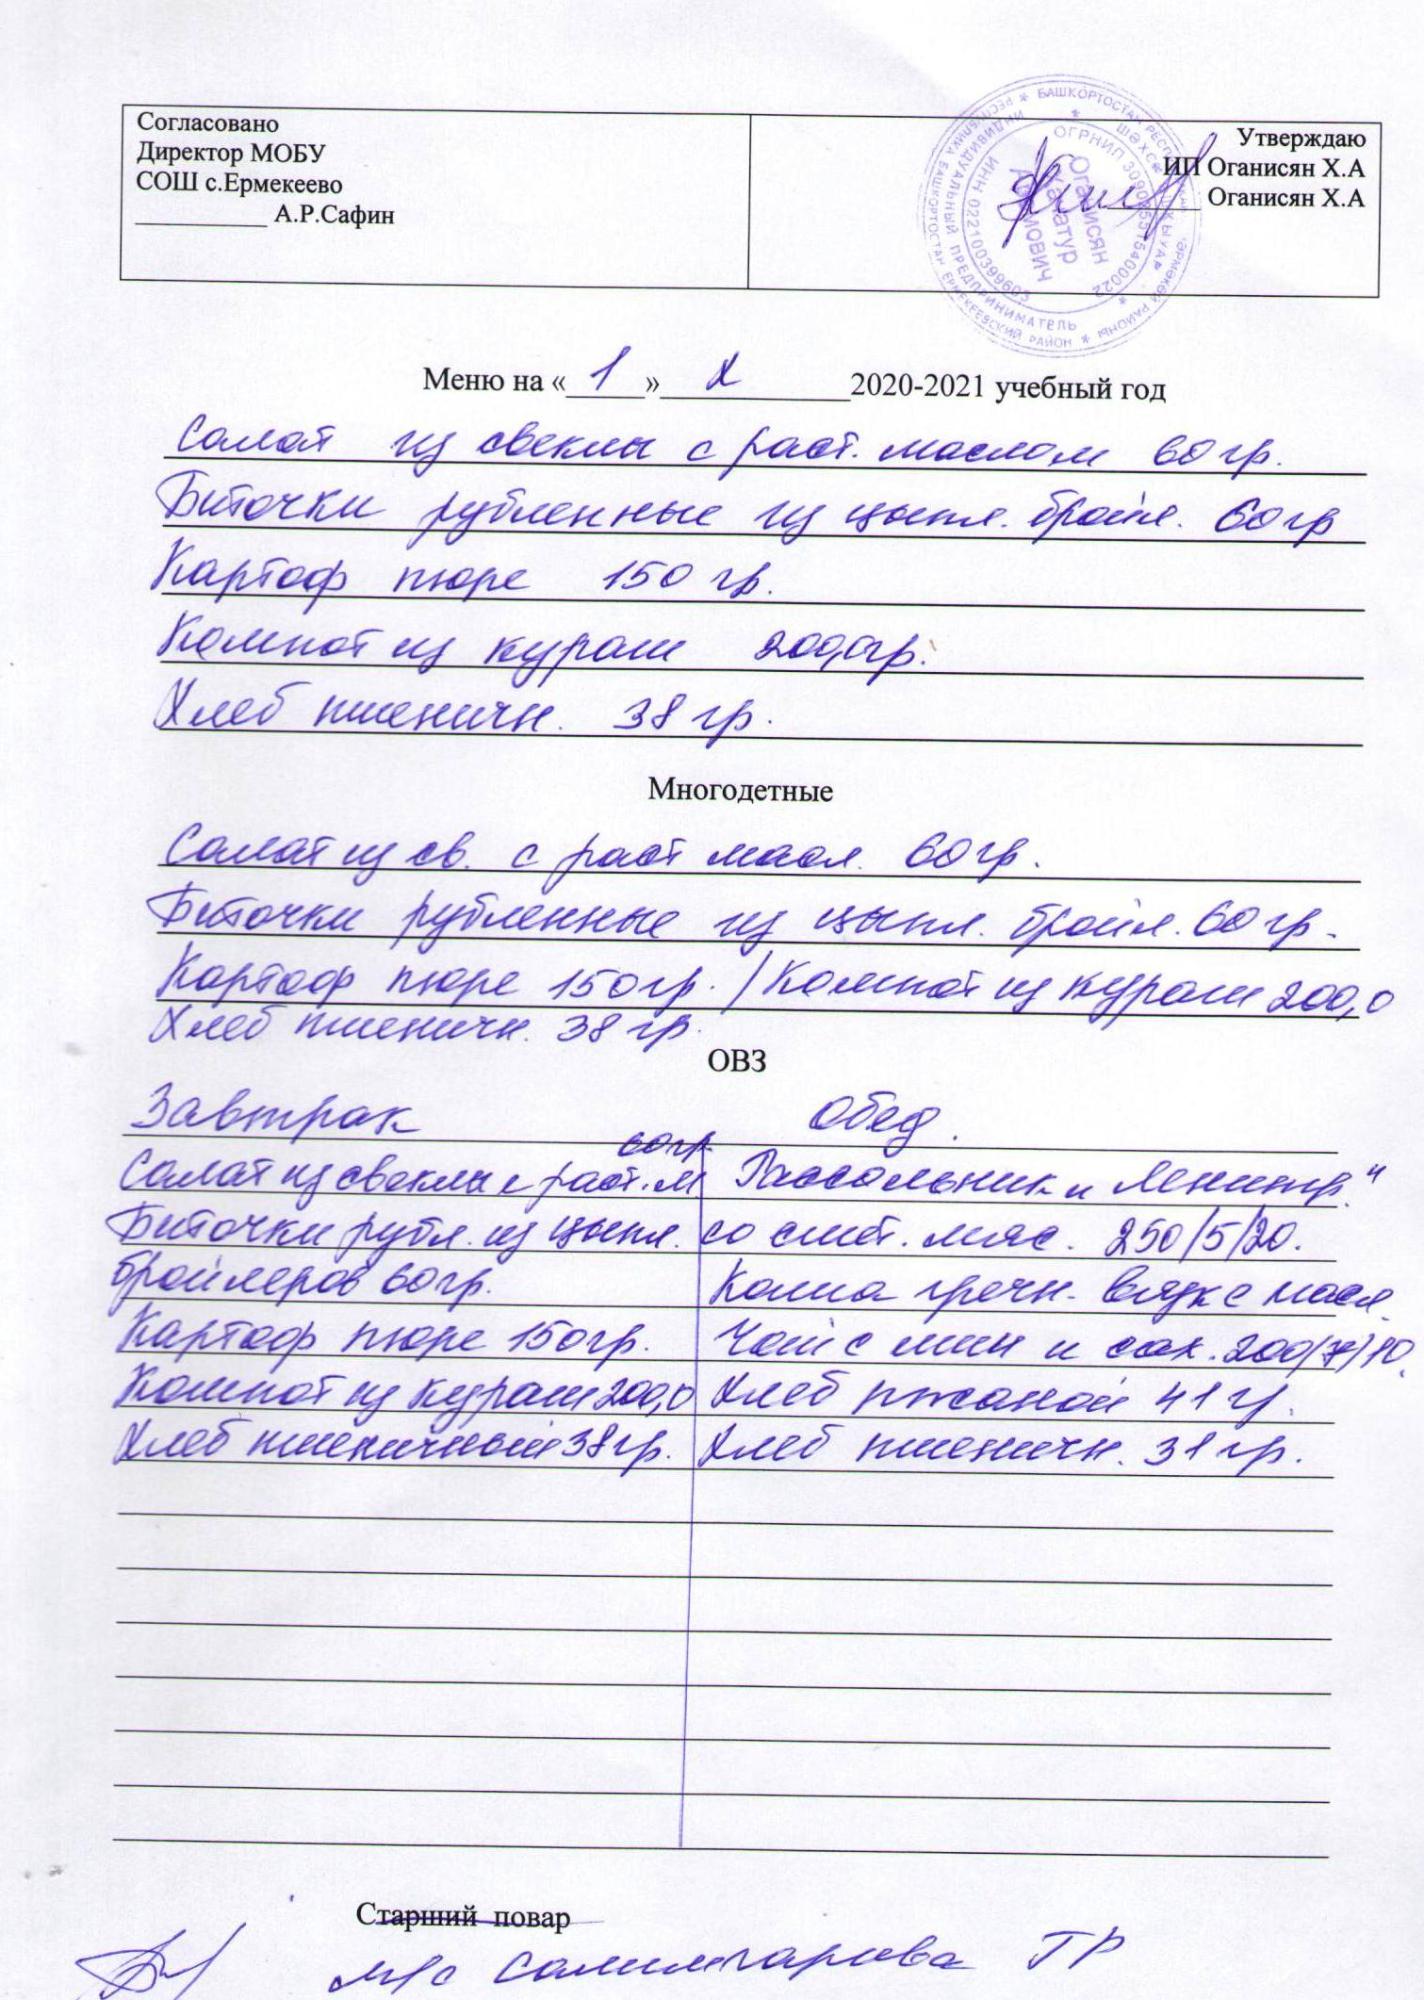 Согласовано
Директор МОБУ
СОШ с.Ермекеево
__________ А.Р.Сафин
Утверждаю
ИП Оганисян Х.А
Оганисян Х.А
БАШКОРТОСТАН РЕСПУБЛИКАҺЫ
РЕСПУБЛИКА БАШКОРТОСТАН ЕРМЕКЕЕВСКИЙ РАЙОН
ИНДИВИДУАЛЬНЫЙ ПРЕДПРИНИМАТЕЛЬ
Оганисян
Меню на «1» X 2020-2021 учебный год
Салат из свеклы с раст. маслом 60 гр.
Биточки рубленные из цыпл. бройл. 60 гр
Картоф пюре 150 гр.
Компот из кураги 200,0 гр.
Хлеб пшеничн. 38 гр.
Многодетные
Салат из св. с раст масл. 60 гр.
Биточки рубленные из цыпл. бройл. 60 гр.
Картоф пюре 150 гр. / Компот из кураги 200,0
Хлеб пшеничн. 38 гр.
ОВЗ
Завтрак Обед.
60 гр
Салат из свеклы с раст. м. Рассольник "Ленингр."
Биточки рубл. из цыпл. со смет. мяс. 250/5/20.
бройлеров 60 гр. Каша гречн. вязк с масл.
Картоф пюре 150 гр. Чай с лим и сах. 200/7/10.
Компот из кураги 200,0 Хлеб ржаной 41 г.
Хлеб пшеничный 38 гр. Хлеб пшеничн. 31 гр.
Старший повар
м/с Салимгареева ГР